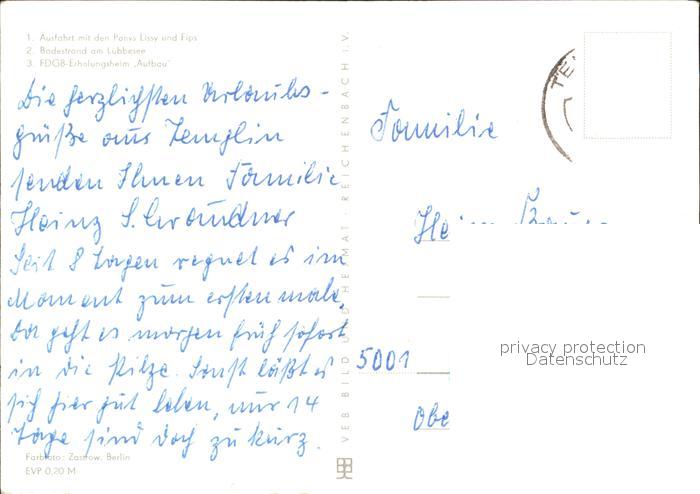 1. Ausfahrt mit den Ponys Lissy und Fips
2. Badestrand am Lübbesee
3. FDGB-Erholungsheim „Aufbau"
Die herzlichsten Urlaubs-
grüße aus Templin
senden Ihnen Familie
Heinz
Seit 8 Tagen regnet es im
Moment zum ersten male,
da geht es morgen früh sofort
in die Pilze. Sonst läßt es
sich hier gut leben, nur 14
Tage sind doch zu kurz.
Farbfoto: Zastrow, Berlin
EVP 0,20 M
VEB BILD UND HEIMAT · REICHENBACH I. V.
TE
Familie
5001
Obe
privacy protection
Datenschutz